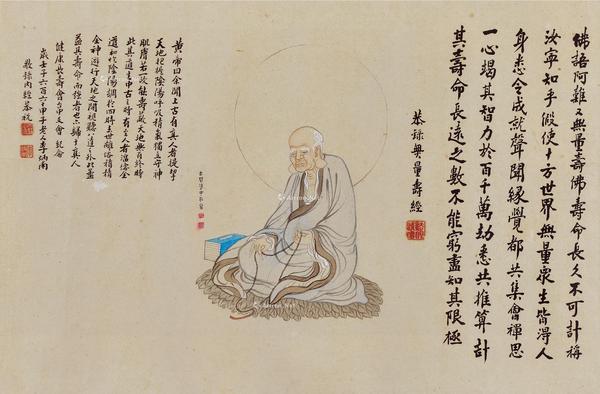 佛語阿難又無量壽佛壽命長久不可計稱
汝寧知乎假使十方世界無量衆生皆得人
身悉令成就聲聞緣覺都共集會禪思
一心竭其智力於百千萬劫悉共推算計
其壽命長遠之數不能窮盡知其限極
恭錄無量壽經
黃帝曰余聞上古有真人者提挈
天地把握陰陽呼吸精氣獨立守神
肌膚若一故能壽敝天地無有終時
此其道生中古之時有至人者淳德全
道和於陰陽調於四時去世離俗積精
全神游行天地之間視聽八達之外此蓋
益其壽命而強者也亦歸於真人
健康長壽會
紀念
敬錄內經恭祝
歲壬子六百六十甲子老人李炳南